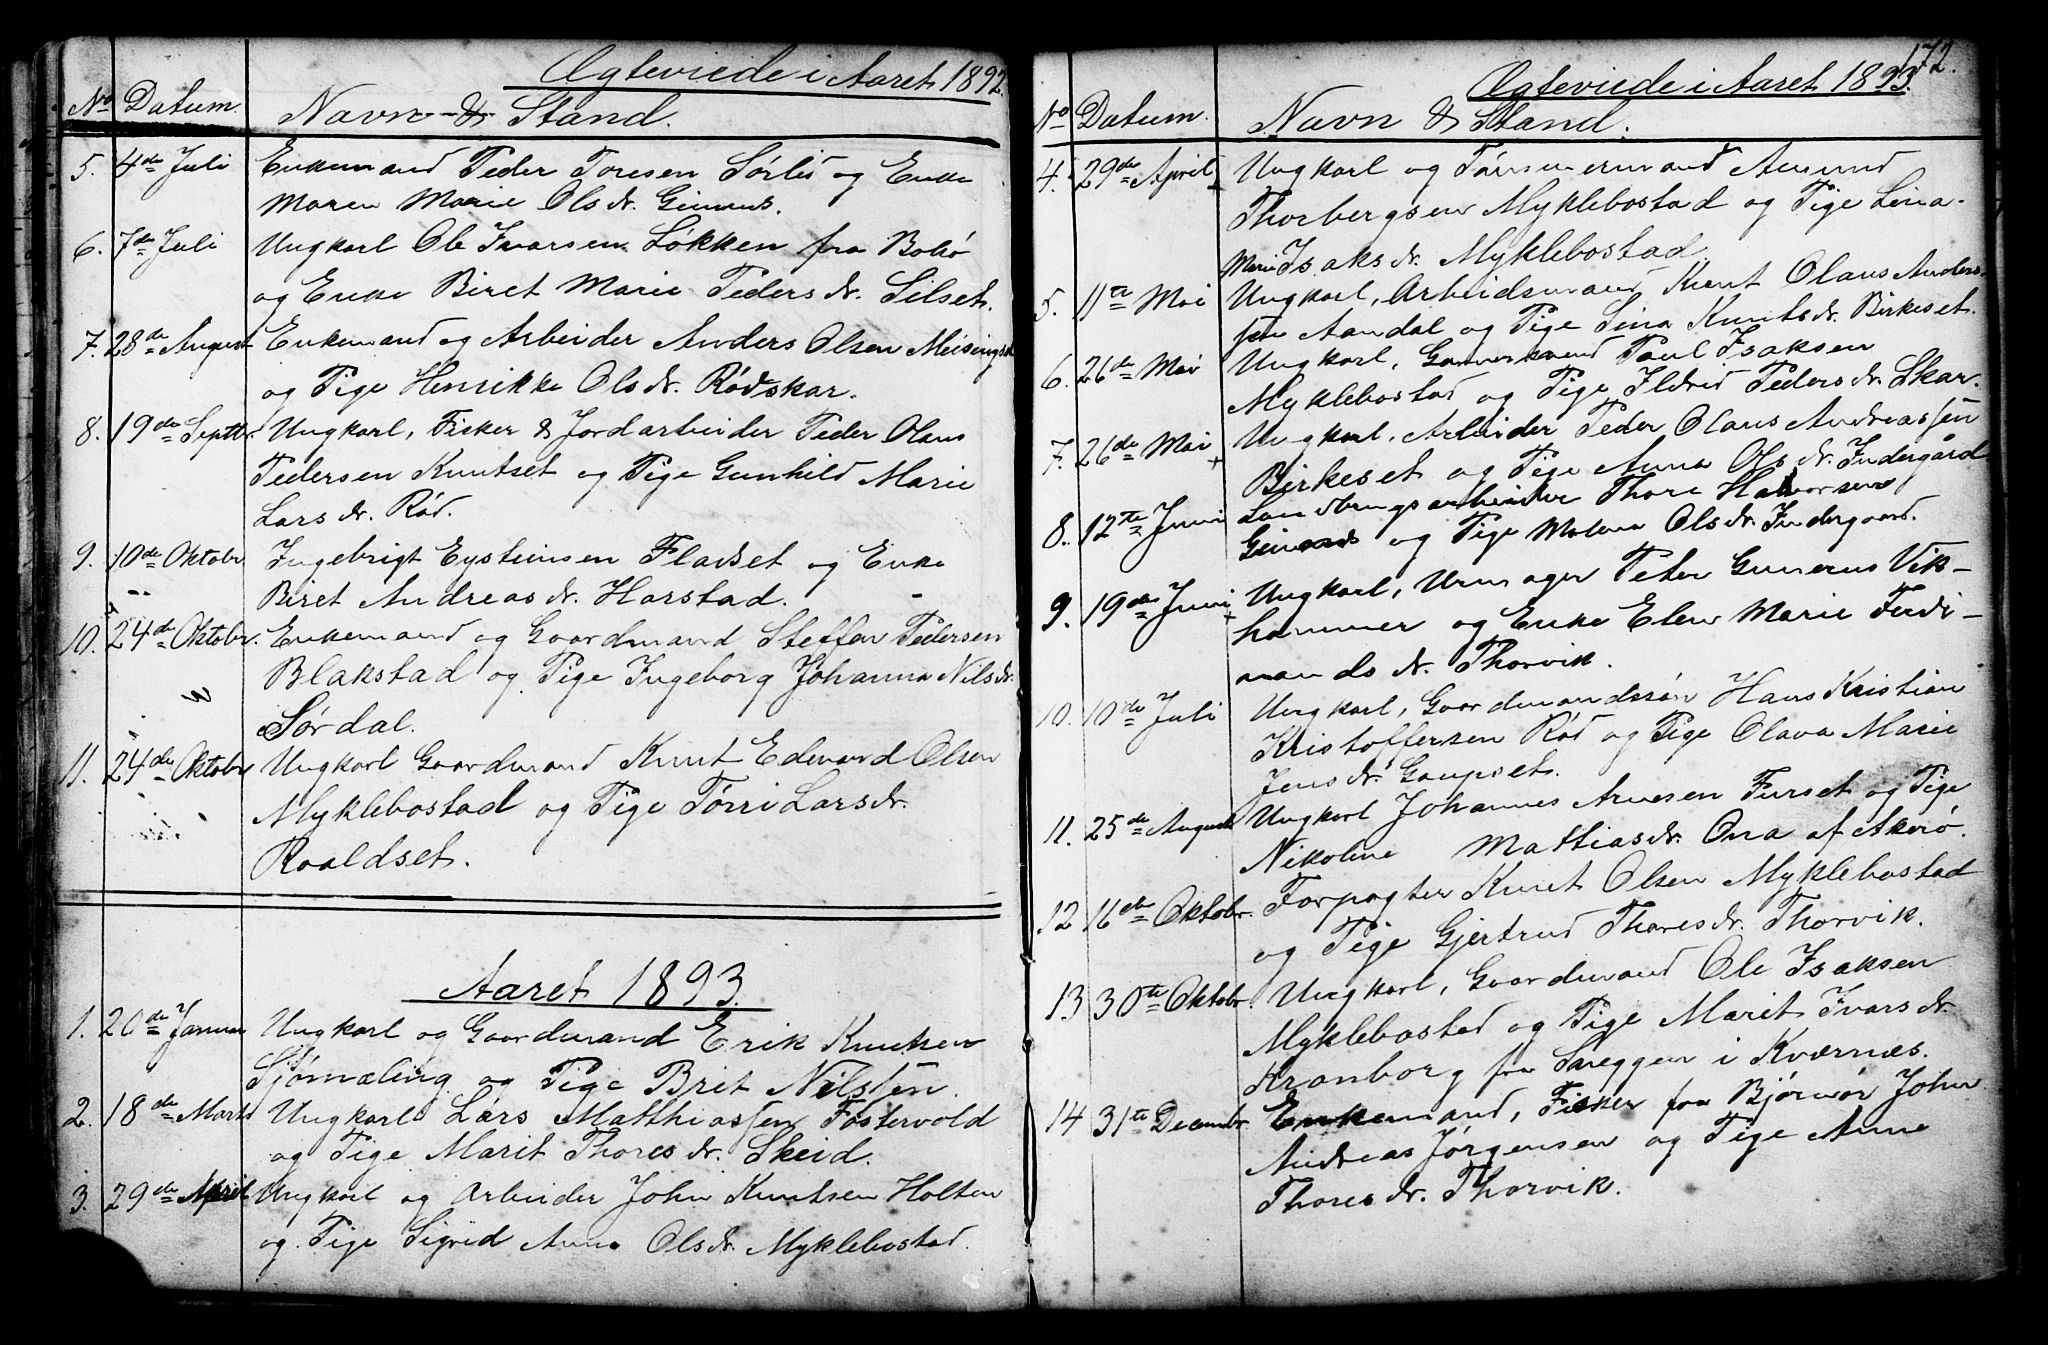 Ægteviede i Aaret 1892.
No Datum. Navn & Stand.
5. 4de Juli Enkemand Peder Toresen Sørlid og Enke
Maren Marie Olsdr. Gimnes.
6. 7de Juli Ungkarl Ole Ivarsen Løkken fra Bolsø
og Enke Beret Marie Pedersdr. Silset.
7. 28de August Enkemand og Arbeider Anders Olsen Meisings
og Pige Henrikke Olsdr. Rødskar.
8. 19de Septbr. Ungkarl, Fisker & Jordarbeider Peder Olaus
Pedersen Knutset og Pige Gunhild Marie
Larsdr. Rød.
9. 10de Oktobr. Ingebrigt Eysteinsen Fladset og Enke
Biret Andreasdr. Harstad.
10. 24de Oktobr. Enkemand og Gaardmand Steffen Pedersen
Blakstad og Pige Ingeborg Johanna Nilsdr.
Sørdal.
11. 24de Oktobr. Ungkarl Gaardmand Knut Edevard Olsen
Myklebostad og Pige Tørri Larsdr.
Roaldset.
Aaret 1893.
1. 20de Januar Ungkarl og Gaardmand Erik Knutsen
Sjømæling og Pige Brit Nilssen.
2. 18de Marts Ungkarl Lars Matthiassen Fostervold
og Pige Marit Thoresdr. Skeid.
3. 29de April Ungkarl og Arbeider John Knutsen Holten
og Pige Sigrid Anna Olsdr. Myklebostad.
172.
Ægteviede i Aaret 1893.
No Datum. Navn & Stand.
4. 29de April Ungkarl og Tømmermand Amund
Thorbergsen Myklebostad og Pige Lina-
Marie Isaksdr. Myklebostad.
5. 11te Mai Ungkarl, Arbeidsmand Knut Olaus Anders-
sen Aandal og Pige Sina Knutsdr. Birkeset.
6. 26de Mai Ungkarl, Paul Isaksen
Myklebostad og Pige Ildrid Pedersdr. Skar.
7. 26de Mai Ungkarl, Arbeider Peder Olaus Andreassen
Birkeset og Pige Anna Olsdr. Indergård
8. 12te Juni Landbrugsarbeider Thore Halvorsen
Gimnes og Pige Malena Olsdr. Indergaard.
9. 19de Juni Ungkarl, Urmager Peter Gunerus Vik-
hammer og Enke Elen Marie Ferdi-
nandsdr. Thorvik.
10. 10de Juli Ungkarl, Gaardmandssøn Hans Kristian
Kristoffersen Rød og Pige Olava Marie
Jensdr. Gaupset.
11. 25de August Ungkarl Johannes Arnesen Furset og Pige
Nikoline Mattiasdr. Ona af Akerø.
12 16de Oktobr. Forpagter Knut Olsen Myklebostad
og Pige Gjertrud Thoresdr. Thorvik.
13 30te Oktobr. Ungkarl, Gaardmand Ole Isaksen
Myklebostad og Pige Marit Ivarsdr.
Kranborg fra Sneggen i Kværnæs.
14 31te Decembr. Enkemand, Fisker fra Bjørnør John
Andreas Jørgensen og Pige Anne
Thoresdr. Thorvik.